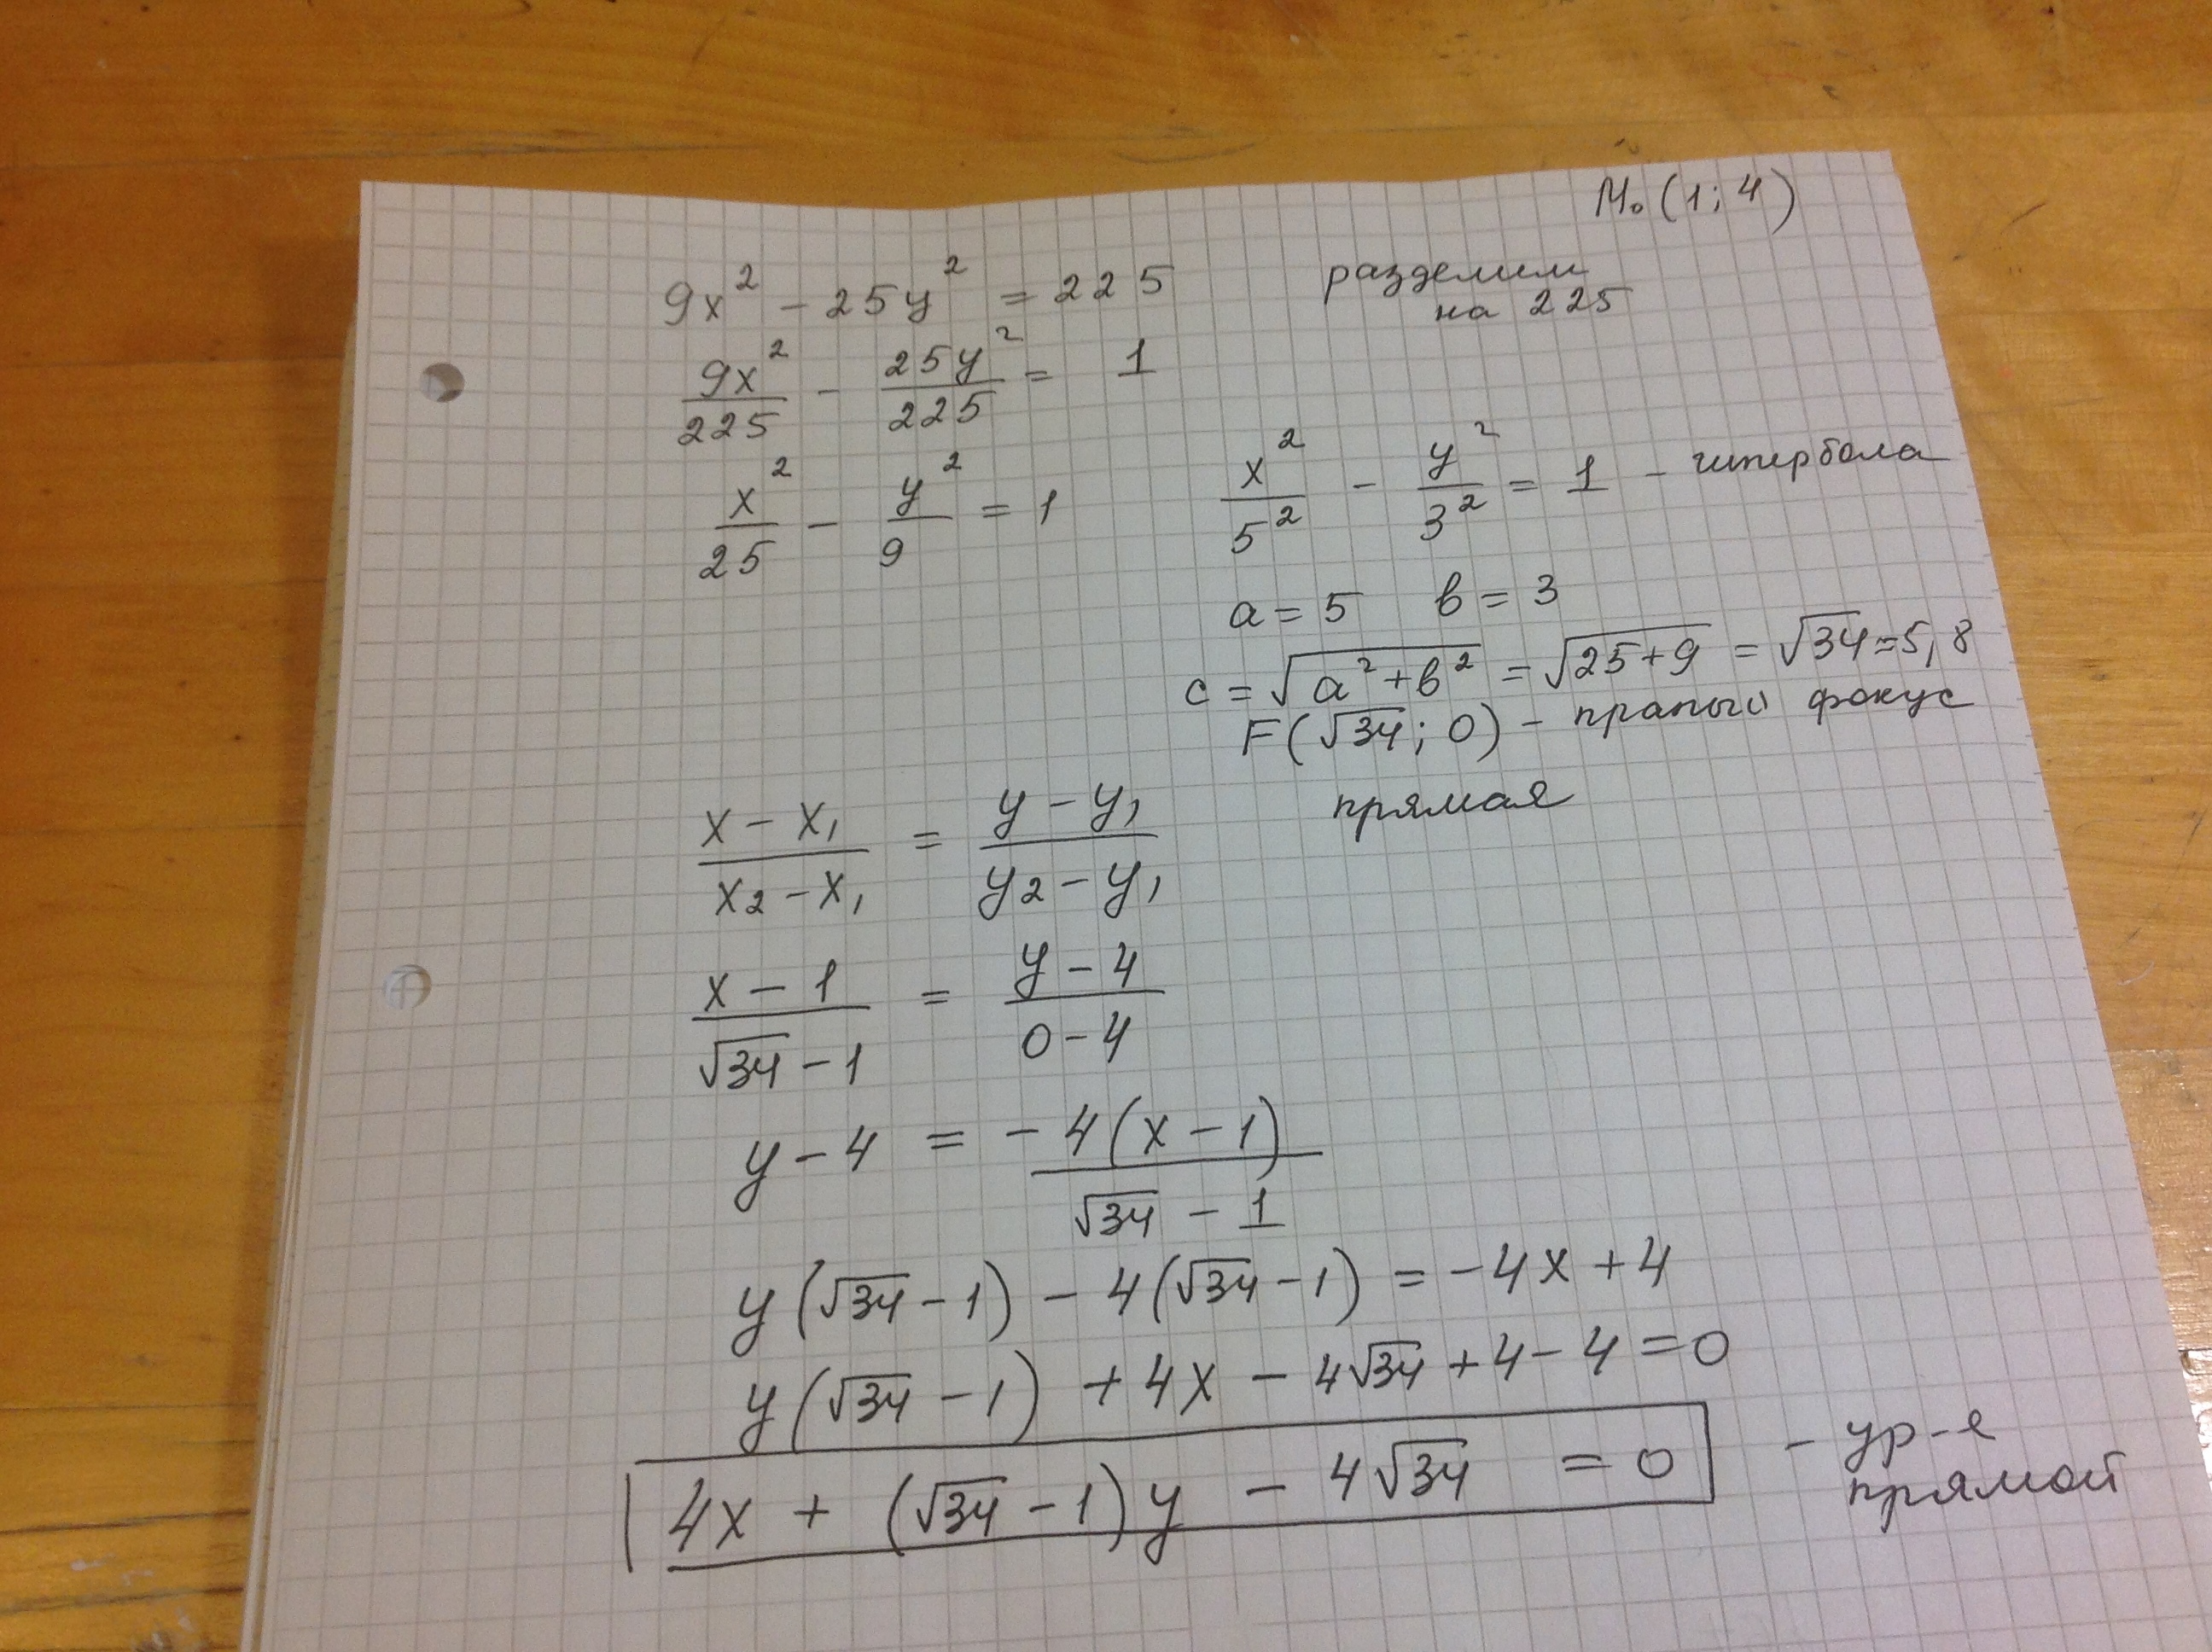 M₀ (1; 4)
9x² - 25y² = 225 разделим
на 225
9x²/225 - 25y²/225 = 1
x²/25 - y²/9 = 1
x²/5² - y²/3² = 1 - гипербола
a = 5 в = 3
c = √(a² + в²) = √(25+9) = √34 ≈ 5,8
F(√34; 0) - правый фокус
прямая
(x - x₁)/(x₂ - x₁) = (y - y₁)/(y₂ - y₁)
(x - 1)/(√34 - 1) = (y - 4)/(0 - 4)
y - 4 = -4(x - 1)/(√34 - 1)
y(√34 - 1) - 4(√34 - 1) = -4x + 4
y(√34 - 1) + 4x - 4√34 + 4 - 4 = 0
4x + (√34 - 1)y - 4√34 = 0 - ур-е
прямой